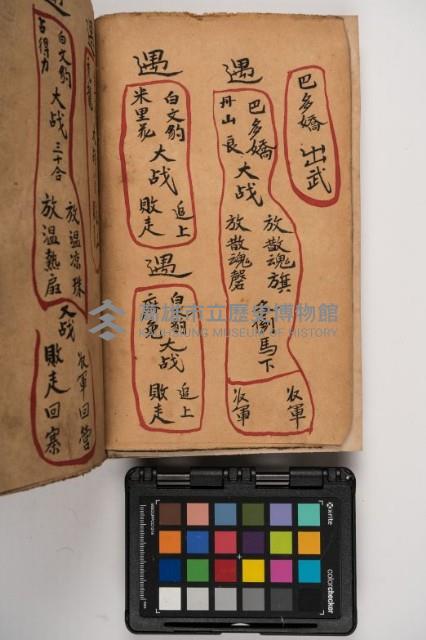 巴多嬌 出武
遇
巴多嬌
丹山
大战
放散魂旗
放散魂磬
倒馬下
收軍
收軍
遇
白文豹
米里花
大战
追上
敗走
遇
白文豹
大战
追上
敗走
遇
白文豹
占得力
大战 三十合
放温凉珠
放温熱扇
大战
收軍回營
敗走回寨
高雄市立歷史博物館
KAOHSIUNG MUSEUM OF HISTORY
x-rite
colorchecker